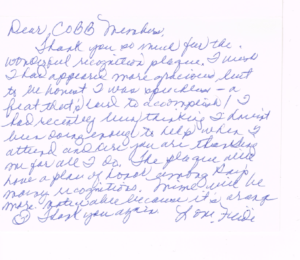 Dear COBB Members,
Thank you so much for the
wonderful recognition plaque. I wish
I had appeared more gracious but
to be honest I was speechless – a
feat that's hard to accomplish! I
had recently been thinking I haven't
been doing enough to help when I
attend and here you are thanking
me for all I do. The plaque will
have a place of honor among Skip's
many recognitions. Mine will be
more noticeable because it's
Thank you again. Love, Heidi